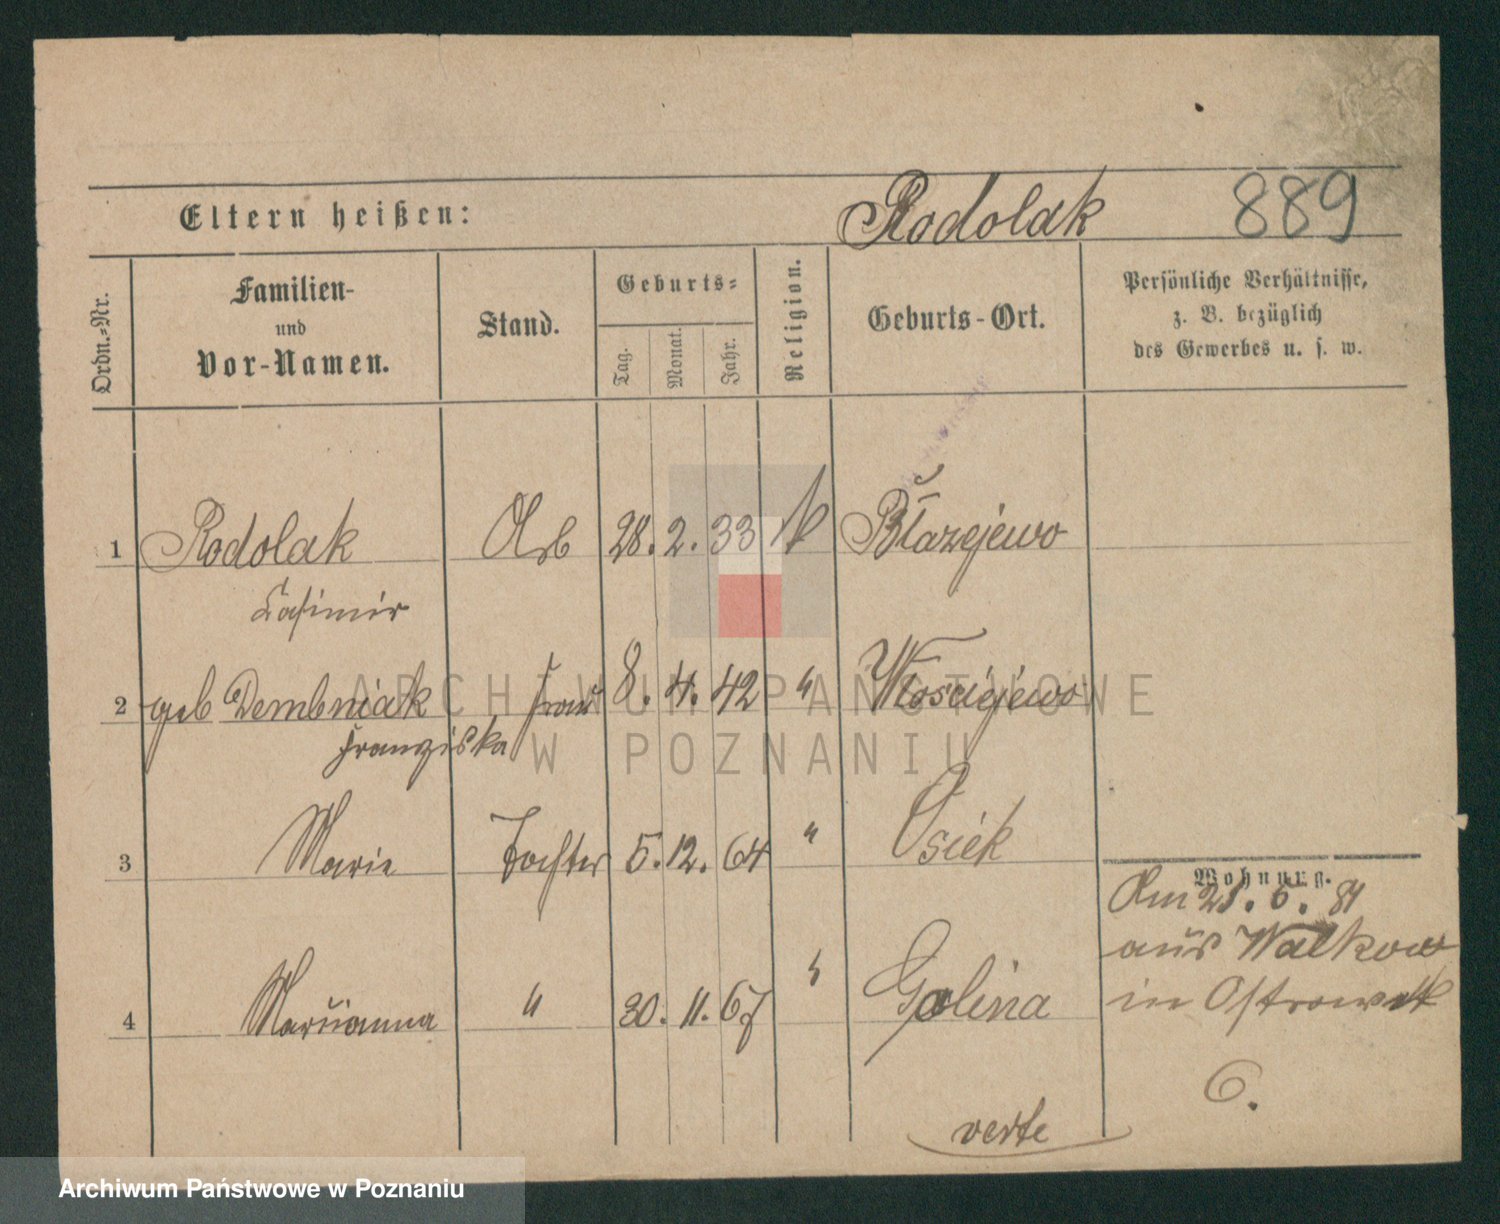 Eltern heißen: Rodolak 889
Ordn.-Nr. Familien- und Vor-Namen. Stand. Geburts- Tag. Monat. Jahr. Religion. Geburts-Ort. Persönliche Verhältnisse, z. B. bezüglich des Gewerbes u. s. w.
1 Rodolak Arb 28. 2. 33 k Błażejewo
Casimir
2 geb Dembniak Frau 8. 4. 42 " Włosciejewo
Franziska
3 Marie Tochter 5. 12. 64 " Osiek
Wohnung.
Am 21. 6. 81
aus Walkow
4 Marianna " 30. 11. 67 " Golina in Ostrow
6.
verte
ARCHIWUM PAŃSTWOWE
W POZNANIU
Archiwum Państwowe w Poznaniu